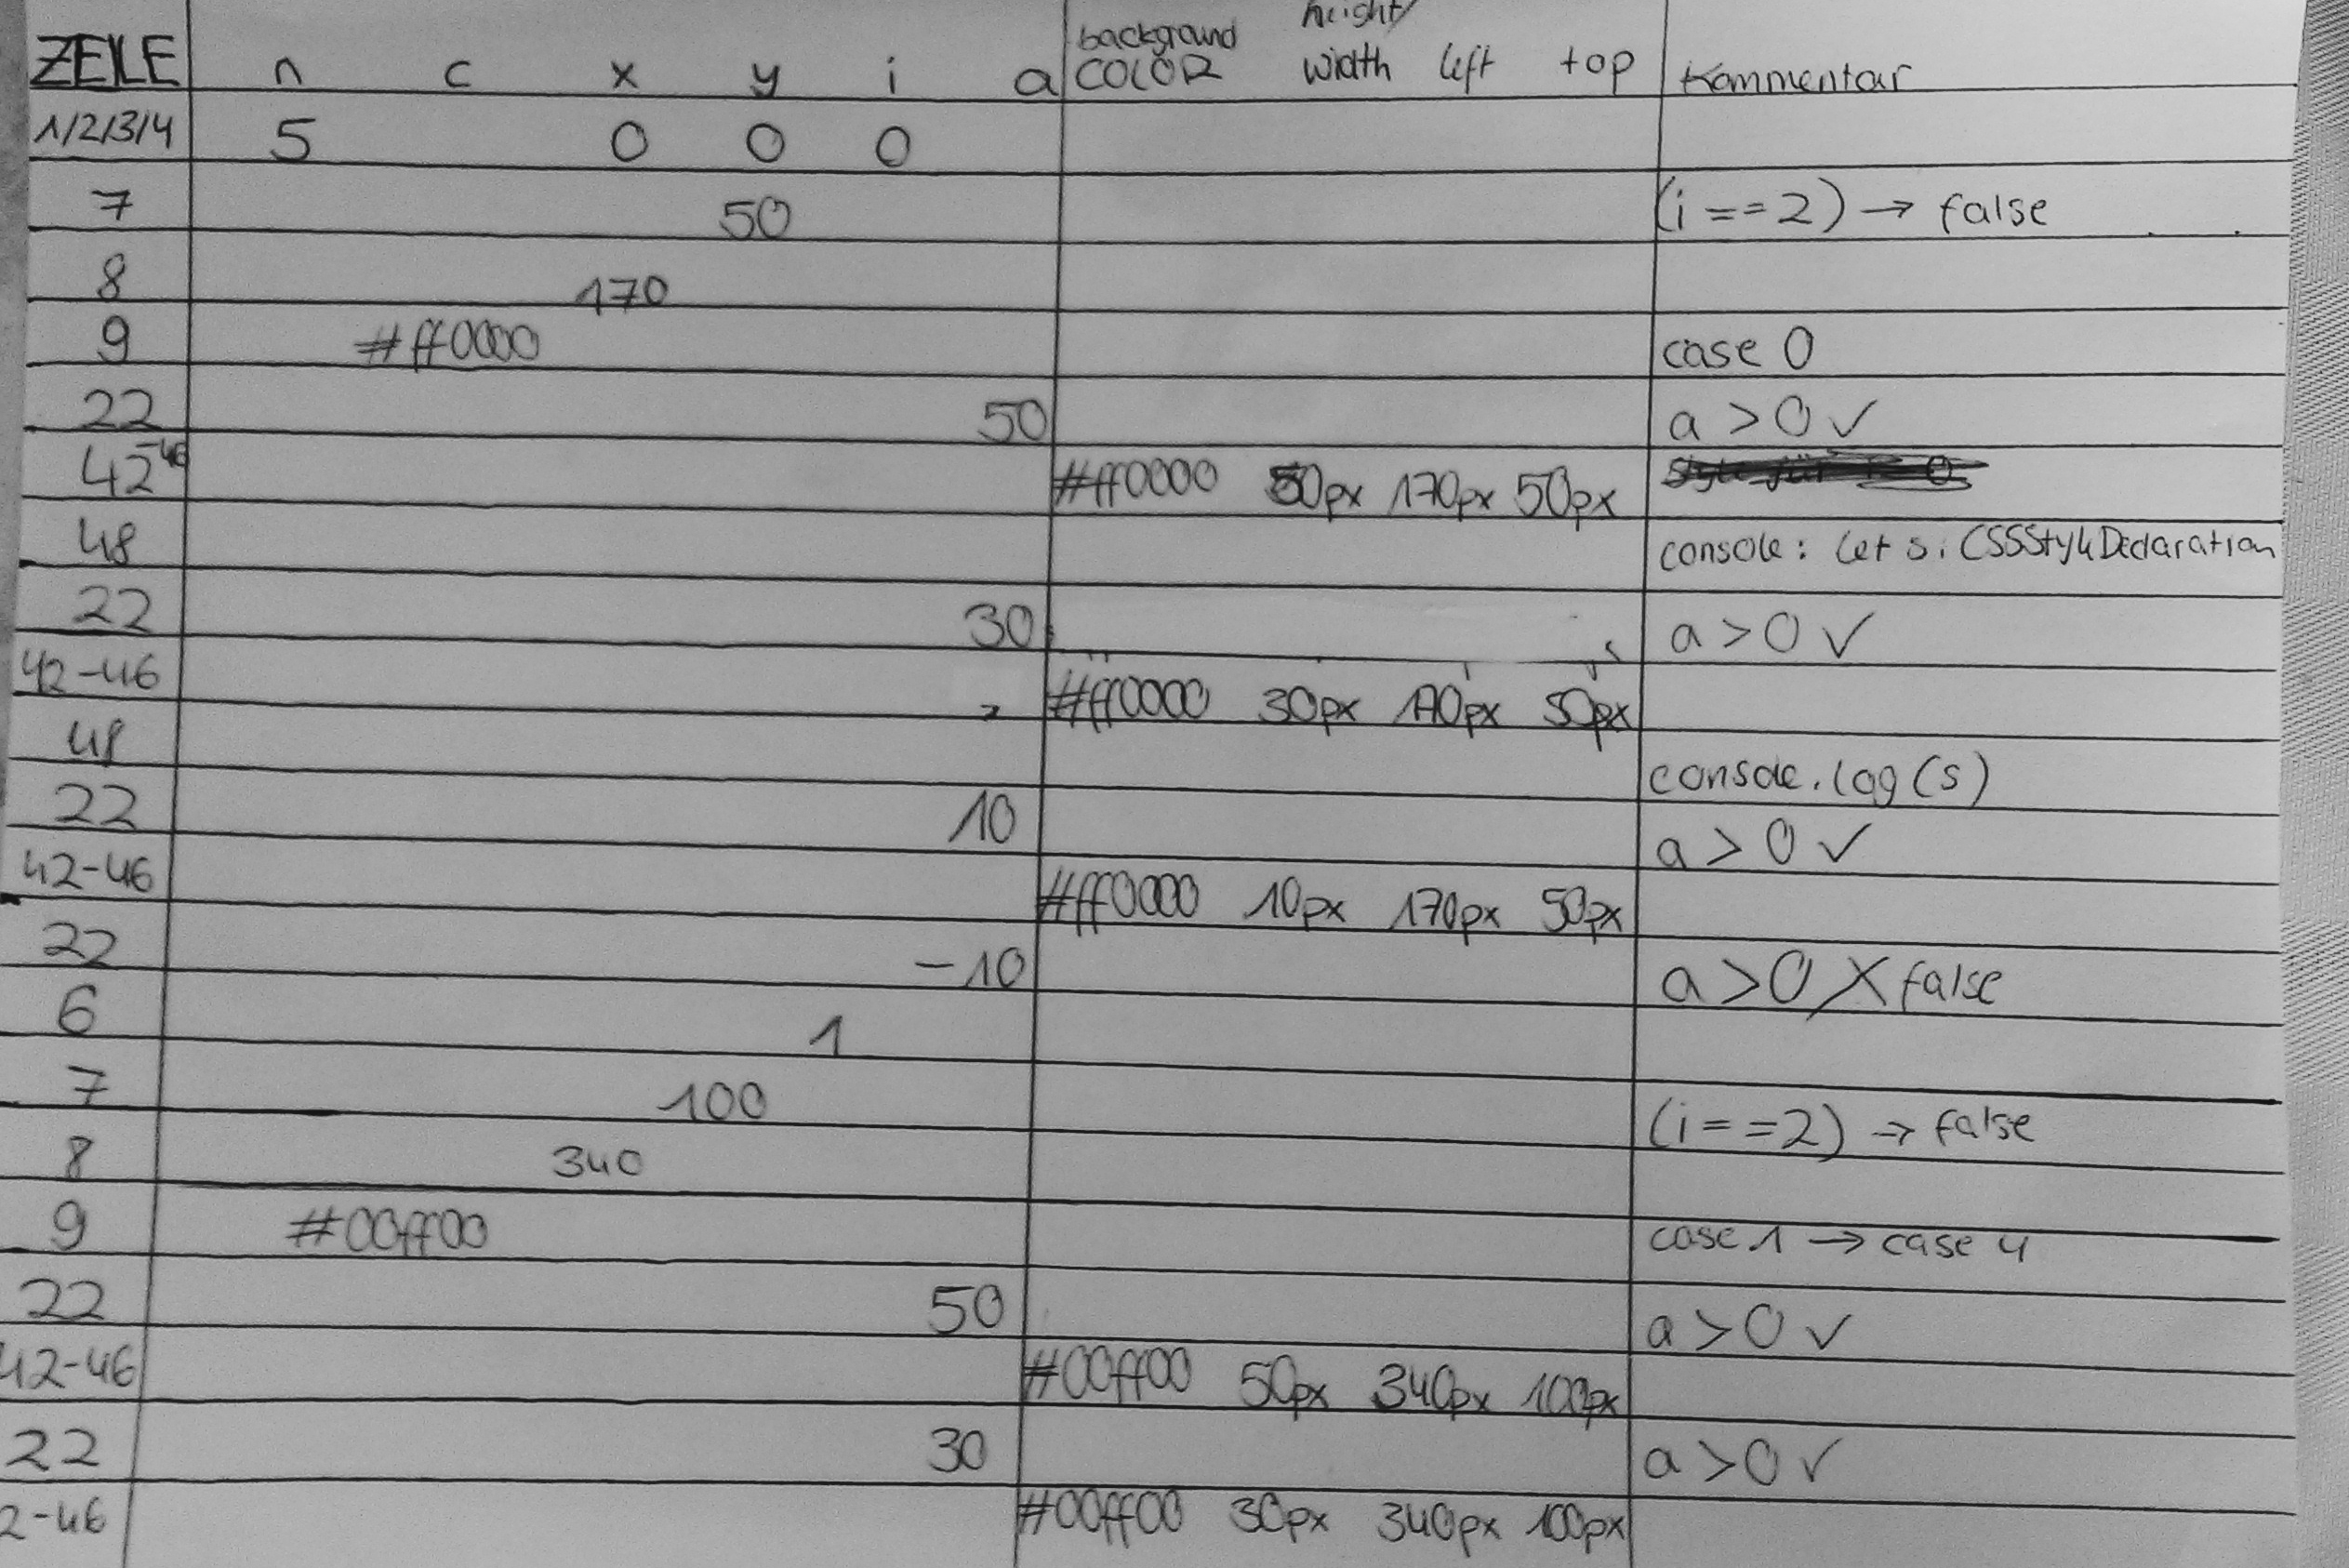 height/
background
ZEILE n c x y i a COLOR width left top Kommentar
1/2/3/4 5 0 0 0
7 50 (i==2) → false
8 170
9 #ff0000 case 0
22 50 a > 0 ✓
42-46 #ff0000 50px 170px 50px
48 console: let s: CSSStyleDeclaration
22 30 a > 0 ✓
42-46 #ff0000 30px 170px 50px
48 console.log(s)
22 10 a > 0 ✓
42-46 #ff0000 10px 170px 50px
22 -10 a > 0 X false
6 1
7 100 (i==2) → false
8 340
9 #00ff00 case 1 → case 4
22 50 a > 0 ✓
42-46 #00ff00 50px 340px 100px
22 30 a > 0 ✓
2-46 #00ff00 30px 340px 100px